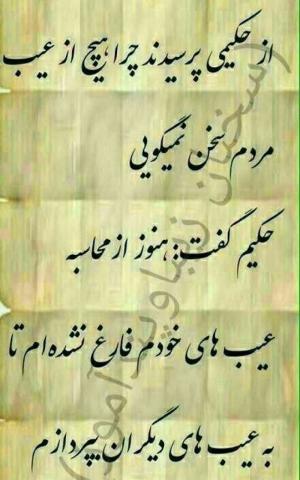 از حکیمی پرسیدند چرا هیچ از عیب
مردم سخن نمیگویی
حکیم گفت: هنوز از محاسبه
عیب های خودم فارغ نشده ام تا
به عیب های دیگران بپردازم
(سخنان زیبا و پند آموز)